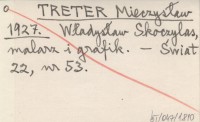 TRETER Mieczysław
1927. Władysław Skoczylas,
malarz i grafik. — Świat
22, nr 53.